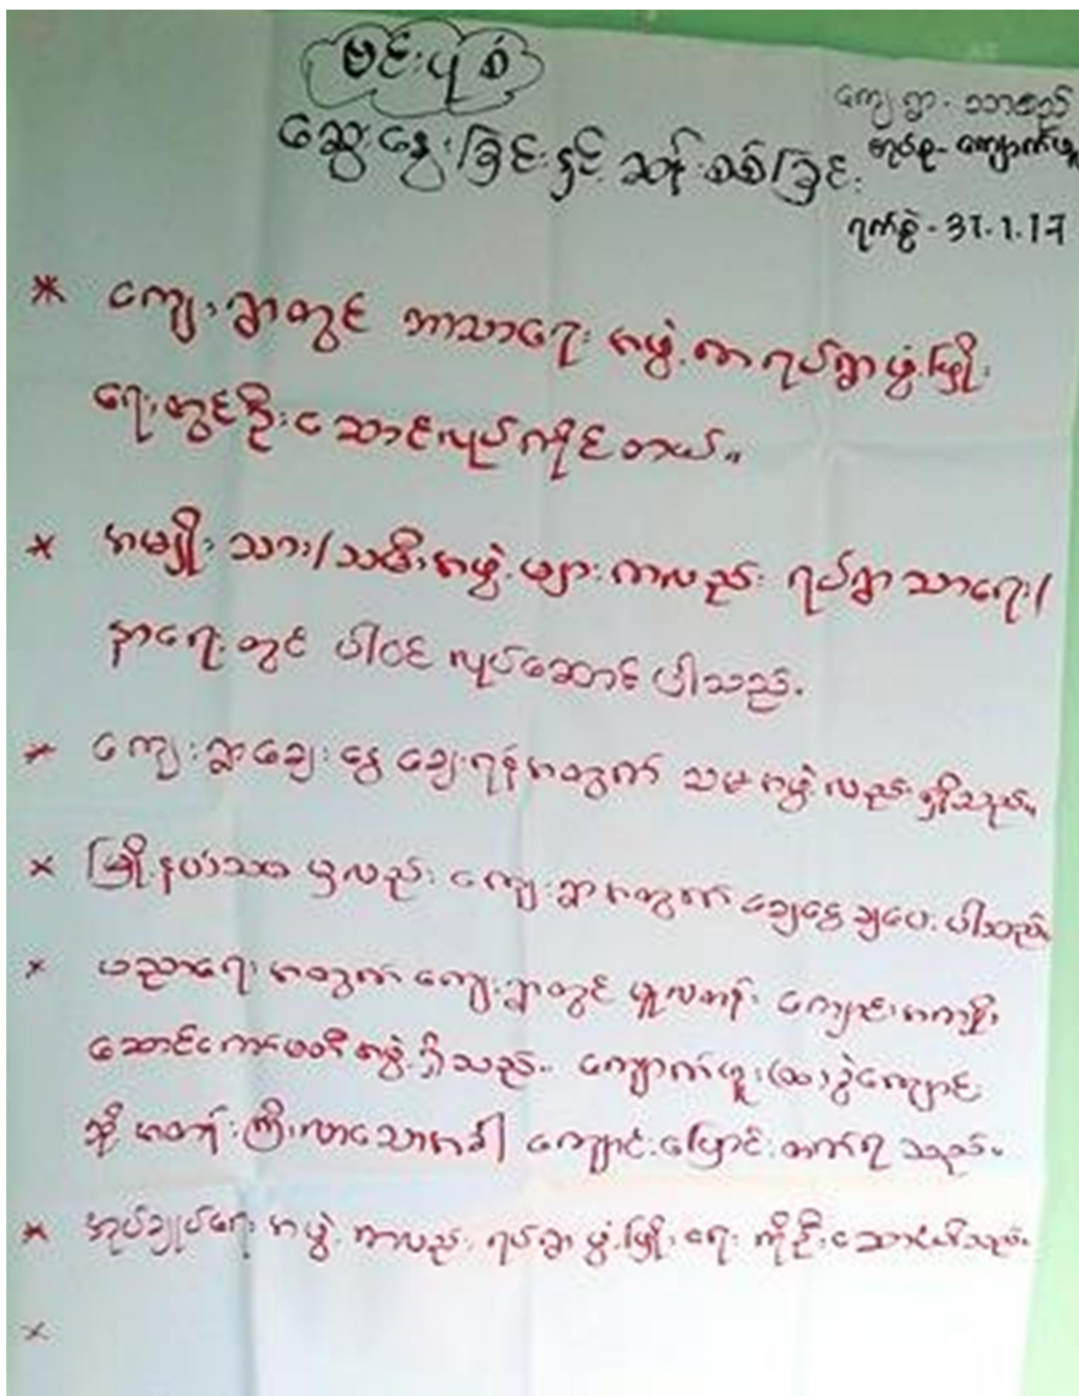 ဗင်းပုံစံ
ဆွေးနွေးခြင်းနှင့် ဆန်းစစ်ခြင်း
ကျေးရွာ - သာစည်
အုပ်စု - ကျောက်ဖူ
ရက်စွဲ - 31.1.17
* ကျေးရွာတွင် ဘာသာရေး အဖွဲ့ က ရပ်ရွာ ဖွံ့ဖြိုး
ရေးတွင် ဦးဆောင်လုပ်ကိုင်တယ်။
* အမျိုးသား/သမီးအဖွဲ့များကလည်း ရပ်ရွာ သာရေး/
နာရေးတွင် ပါဝင် လုပ်ဆောင်ပါသည်။
* ကျေးရွာချေးငွေ ချေးရန်အတွက် သမအဖွဲ့လည်းရှိသည်။
* မြို့နယ်သမ မှလည်း ကျေးရွာအတွက် ချေးငွေ ချပေးပါသည်
* ပညာရေးအတွက် ကျေးရွာတွင် မူလတန်း ကျောင်းအကျိုး
ဆောင်ကော်မတီအဖွဲ့ရှိသည်။ ကျောက်ဖူး(ထ)ခွဲကျောင်း
သို့ အတန်းကြီးလာသောအခါ ကျောင်းပြောင်းတက်ရသည်။
* အုပ်ချုပ်ရေးအဖွဲ့ ကလည်း ရပ်ရွာ ဖွံ့ဖြိုးရေး ကိုဦးဆောင်ပါသည်။
*